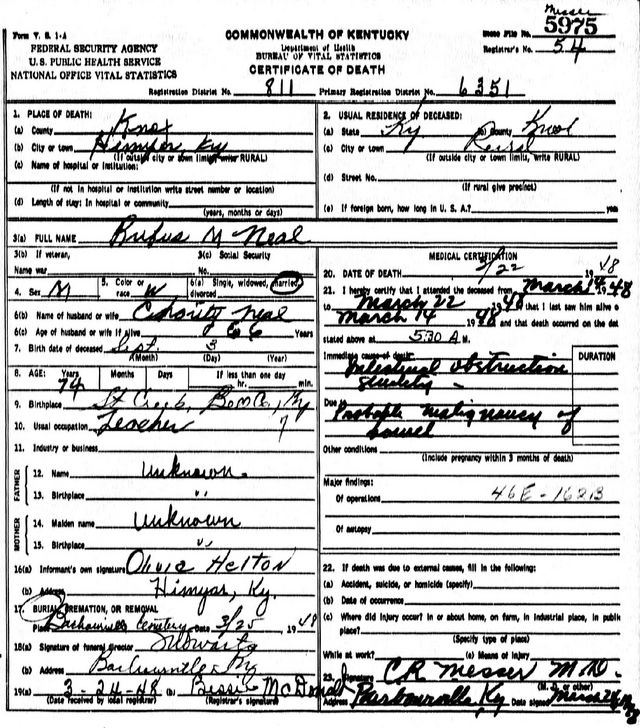 Messer
Form V. S. 1-A
FEDERAL SECURITY AGENCY
U. S. PUBLIC HEALTH SERVICE
NATIONAL OFFICE VITAL STATISTICS
COMMONWEALTH OF KENTUCKY
Department of Health
BUREAU OF VITAL STATISTICS
CERTIFICATE OF DEATH
File No. 5975
Registrar's No. 54
Registration District No. 811 Primary Registration District No. 6351
1. PLACE OF DEATH:
(a) County Knox
(b) City or town Himyar, Ky
(If outside city or town limits, write RURAL)
(c) Name of hospital or institution:
(If not in hospital or institution write street number or location)
(d) Length of stay: In hospital or community
(years, months or days)
2. USUAL RESIDENCE OF DECEASED:
(a) State Ky (b) County Knox
(c) City or town Rural
(If outside city or town limits, write RURAL)
(d) Street No.
(If rural give precinct)
(e) If foreign born, how long in U. S. A.? years
3(a) FULL NAME Rufus M Neal
3(b) If veteran,
Name war
3(c) Social Security
No.
4. Sex M
5. Color or
race W
6(a) Single, widowed, married,
divorced
6(b) Name of husband or wife Charity Neal
6(c) Age of husband or wife if alive 66 Years
7. Birth date of deceased Sept 3
(Month) (Day) (Year)
8. AGE: Years Months Days If less than one day
74 hr. min.
9. Birthplace
10. Usual occupation Teacher
11. Industry or business
FATHER
12. Name Unknown
13. Birthplace "
MOTHER
14. Maiden name Unknown
15. Birthplace "
16(a) Informant's own signature Olivia Helton
(b) Address Himyar, Ky.
17. BURIAL, CREMATION, OR REMOVAL
Place Cemetery Date 3/25 1948
18(a) Signature of funeral director
(b) Address Barbourville Ky
19(a) 3-24-48 (b) Bessie McDonald
(Date received by local registrar) (Registrar's signature)
MEDICAL CERTIFICATION
20. DATE OF DEATH 3/22 1948
21. I hereby certify that I attended the deceased from March 14 1948
to March 22 1948 that I last saw him alive on
March 14 1948 and that death occurred on the date
stated above at 5:30 A M.
Immediate cause of death Intestinal obstruction
DURATION
Due to Probable malignancy of
bowel
Other conditions
(Include pregnancy within 3 months of death)
Major findings:
Of operations 46E-162B
Of autopsy
22. If death was due to external causes, fill in the following:
(a) Accident, suicide, or homicide (specify)
(b) Date of occurrence
(c) Where did injury occur? In or about home, on farm, in industrial place, in public
place?
(Specify type of place)
While at work? (e) Means of injury
23. Signature C R Messer M.D.
(M. D. or other)
Address Barbourville, Ky Date signed March 24